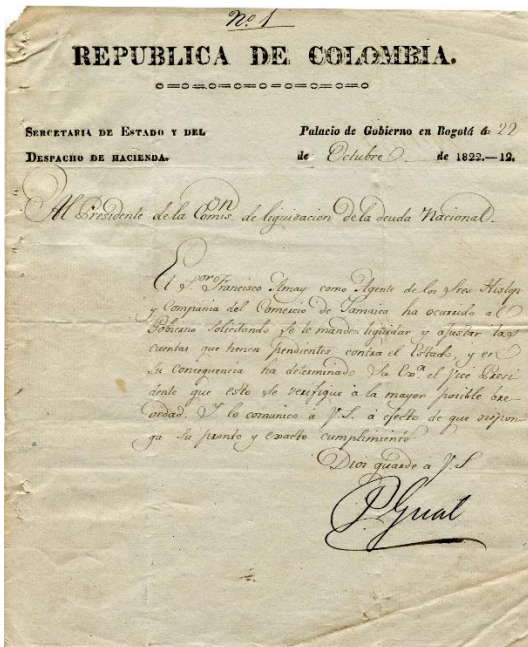 No. 1
REPUBLICA DE COLOMBIA.
SERCETARIA DE ESTADO Y DEL
DESPACHO DE HACIENDA.
Palacio de Gobierno en Bogotá á 22
de Octubre de 1822.—12.
Al Presidente de la Comisn. de liquidacion de la deuda Nacional.
El Sor. Francisco como Agente de los Sres Hislop
y Compañia del Comercio de Jamaica ha ocurrido al
Gobierno solicitando se le mande liquidar y ajustar las
cuentas que tienen pendientes contra el Estado, y en
su consequencia ha determinado Su Exa. el Vice Presi
dente que esto se verifique à la mayor posible bre-
vedad. Y lo comunico à V.S. à efecto de que dispon-
ga su pronto y exacto cumplimiento
Dios guarde à V.S.
P. Gual